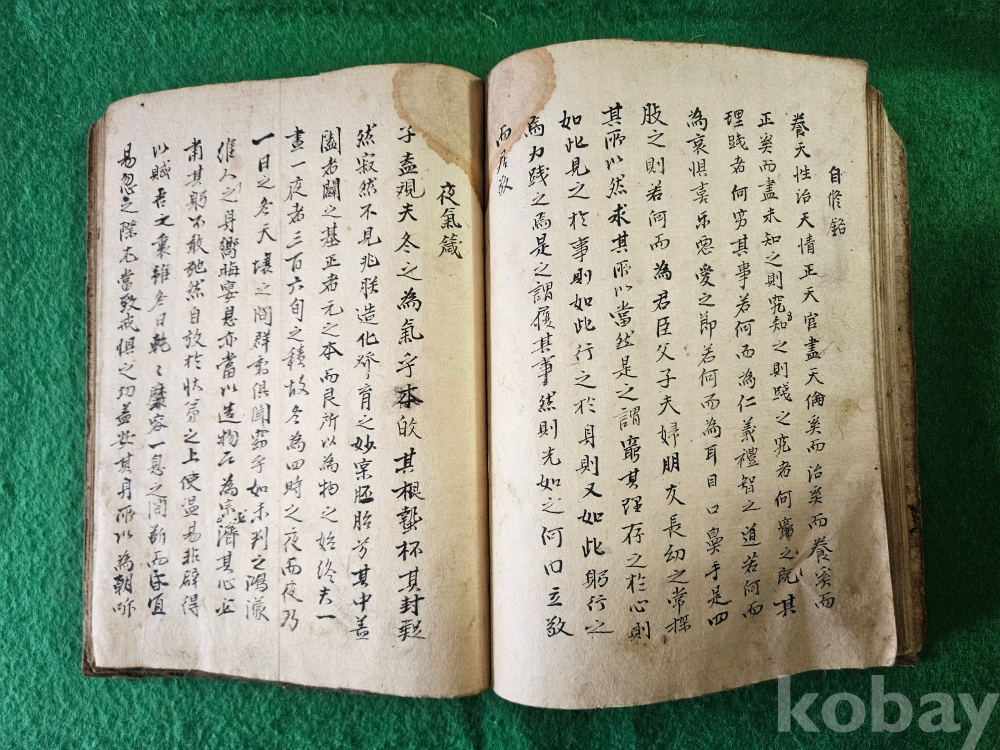 自修銘
養天性治天情正天官盡天倫奚而治奚而養奚而
正奚而盡未知之則究知之則踐之究者何窮之旣其
理踐者何窮其事若何而為仁義禮智之道若何而
為哀惧喜乐惡愛之節若何而為耳目口鼻手足四
肢之則若何而為君臣父子夫婦朋友長幼之常探
其所以然求其所以當然是之謂窮其理存之於心則
如此見之於事則如此行之於身則又如此躬行之
為力踐之為是之謂履其事然則先如之何曰立敬
而居敬
夜氣箴
子盍視夫冬之為氣乎木啟其根蟄杯其封凝
然寂然不見兆朕造化發育之妙寔胚胎兮其中蓋
闔者闢之基正者元之本而艮所以為物之始終夫一
晝一夜者三百六旬之積故冬為四時之夜而夜乃
一日之冬天壤之間群物俱闃窈乎如未判之鴻濛
維人之身嚮晦宴息亦當以造物而為宗濟其心必
肅其躬不敢弛然自放於牀笫之上使慢易非辟得
以賊吾之衷雖冬日乾〻靡容一息之間斷而宜
易忽之際尤當致戒俱之功蓋安其身所以為朝听
kobay